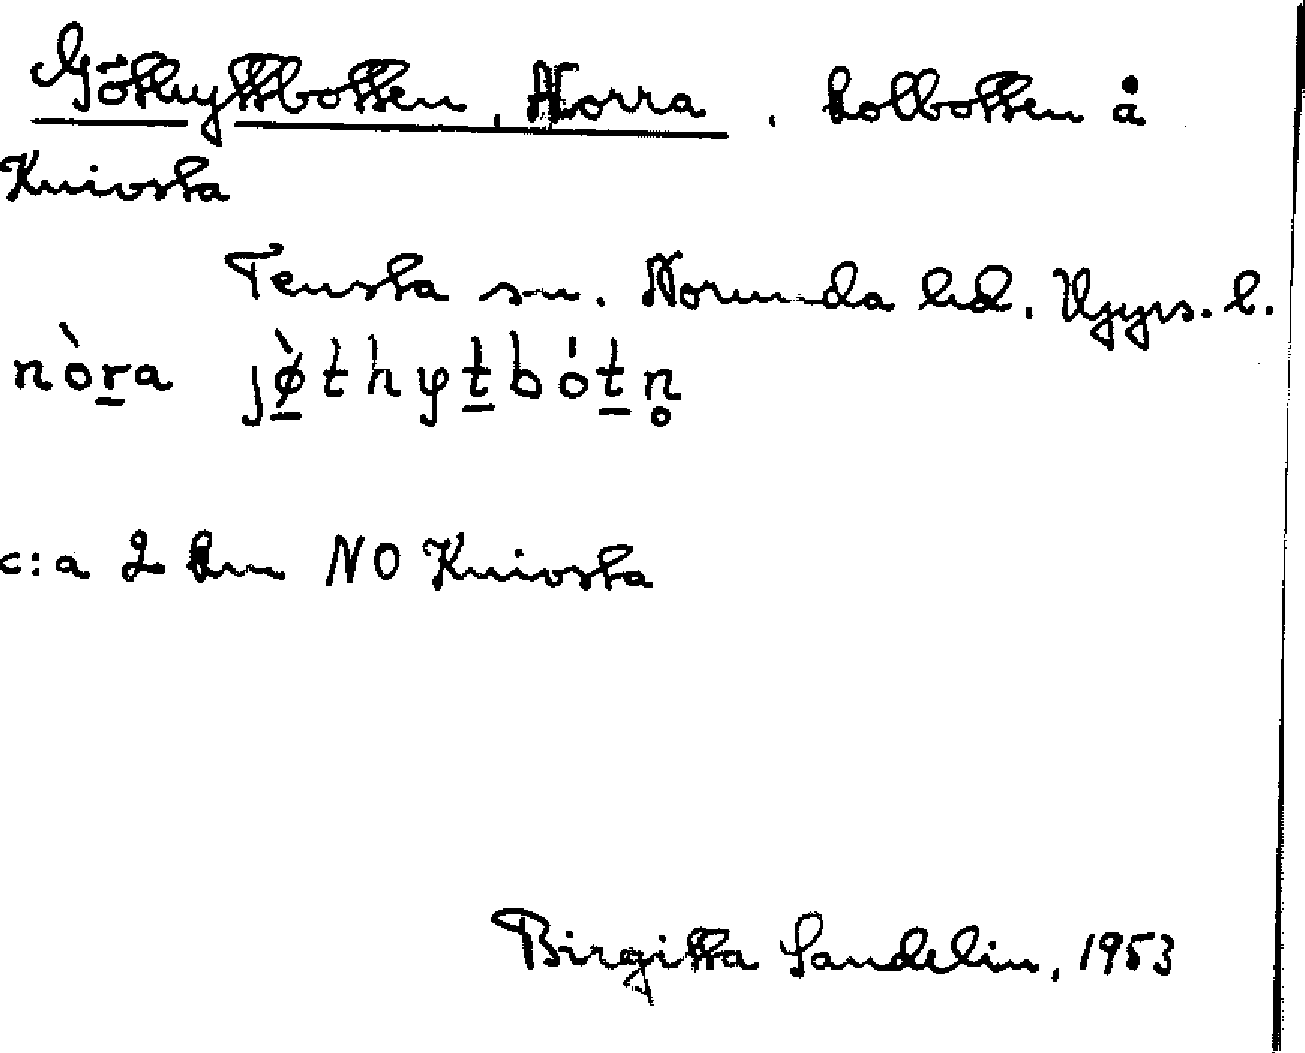 Göthyttbotten, Norra, kolbotten å
Knivsta
Tensta sn. Norunda hd. Upps. l.
nòr̲a jø̲̀thyt̲bót̲n̥
c:a 2 km NO Knivsta
Birgitta Sandelin, 1953